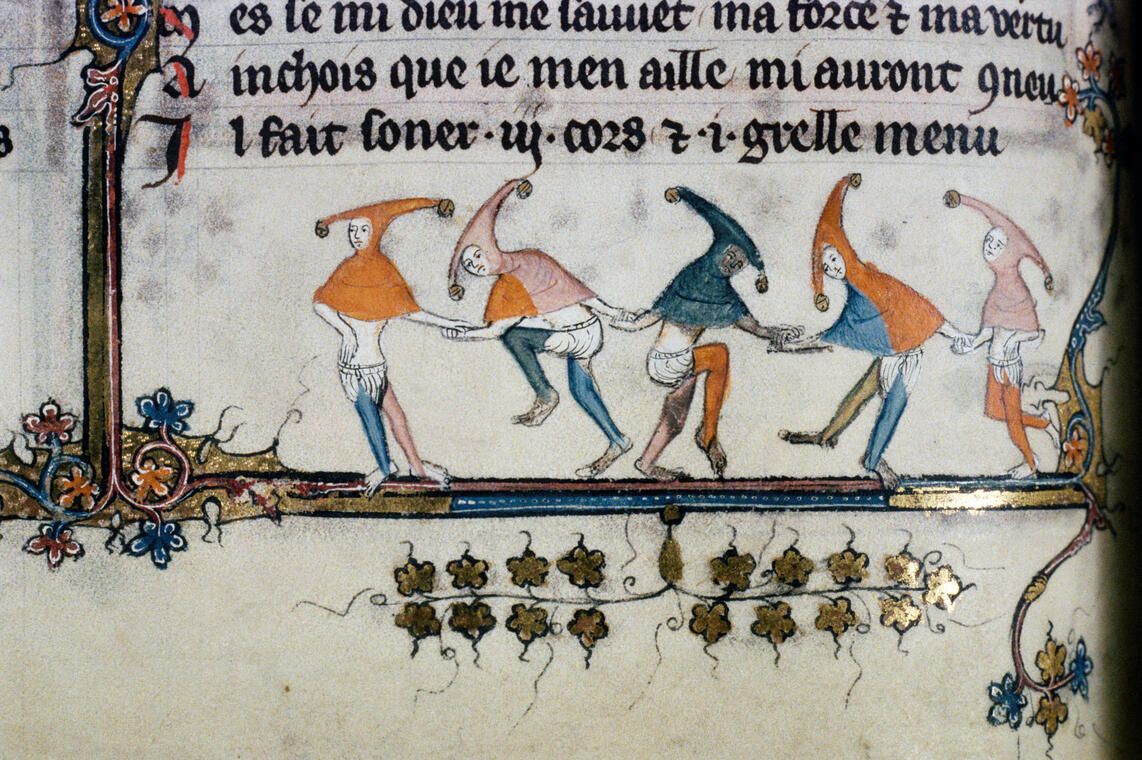 es se mi dieu me sauuet ma force ⁊ ma vertu
A inchois que ie men aille mi auront ꝯneu
I l fait soner · iij · cors ⁊ · i · grelle menu